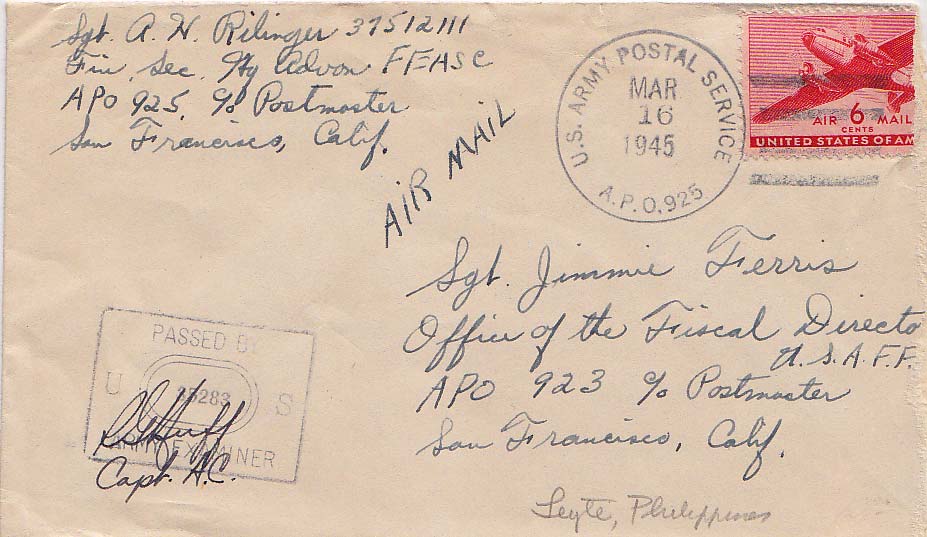 Sgt. A. H. Rilinger 37512111
Fin. Sec. Hq Advon FEASC
APO 925, c/o Postmaster
San Francisco, Calif.
AIR MAIL
U.S. ARMY POSTAL SERVICE
MAR
16
1945
A.P.O. 925
AIR 6 MAIL
CENTS
UNITED STATES OF AM
Sgt. Jimmie Ferris
Office of the Fiscal Directo
U.S.A.F.F.
APO 923 c/o Postmaster
San Francisco, Calif.
Leyte, Philippines
PASSED BY
U 35283 S
ARMY EXAMINER
Huff
Capt. A.C.